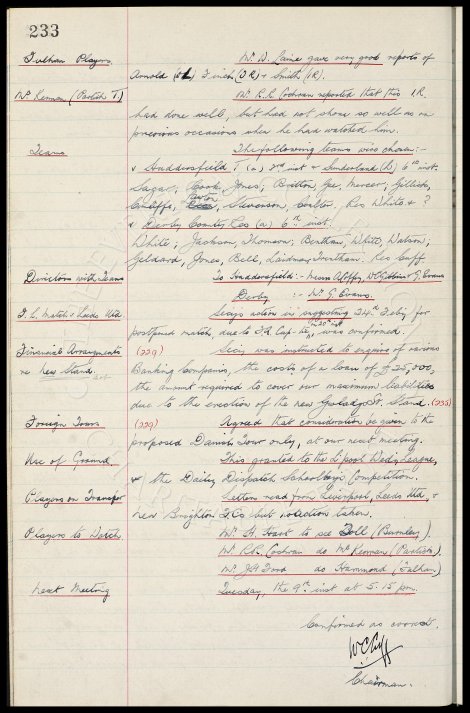 233
Fulham Players. Mr. D. Laine gave very good reports of
Arnold (OL) Finch (OR) & Smith (IR).
Mr Kernan (Partick T.) Mr. R.R. Cochran reported that this IR
had done well, but had not shone so well as on
previous occasions when he had watched him.
Teams The following teams were chosen:-
v Huddersfield T (a) 3rd inst & Sunderland (h) 6th inst.
Sagar; Cook, Jones; Britton, Gee, Mercer; Gillick,
Cunliffe, Stevenson, Coulter. Res White & ?
v Derby County Res (a) 6th inst.
White; Jackson, Thomson; Bentham, White, Watson;
Geldard, Jones, Bell, Laidman, Trentham. Res Cuff
Directors with Teams To Huddersfield:- Messrs & G. Evans
Derby :- Mr. G. Evans.
F.L. Match: Leeds Utd Secys action in suggesting 24th Feby for
postponed match, due to F.A. Cup-tie on 20th inst, was confirmed.
Financial Arrangements (229) Secy was instructed to enquire of various
re New Stand. Banking Companies, the costs of a loan of £25,000,
the amount required to cover our maximum liabilities
due to the erection of the new Goodison St. Stand. (235)
Foreign Tours. (229) Agreed that consideration be given to the
proposed Danish Tour only, at our next meeting.
Use of Ground. This granted to the L'pool Wed'y League,
& the Daily Dispatch Schoolboys Competition.
Players on Transfer Letters read from Liverpool, Leeds Utd, &
New Brighton F.Cs but no action taken.
Players to Watch Mr. H. to see Toll (Burnley).
Mr. R.R. Cochran do McKernan (Partick).
Mr. do Hammond (Fulham)
Next Meeting Tuesday, the 9th inst at 5.15 pm.
Confirmed as correct.
W C Cuff
Chairman.